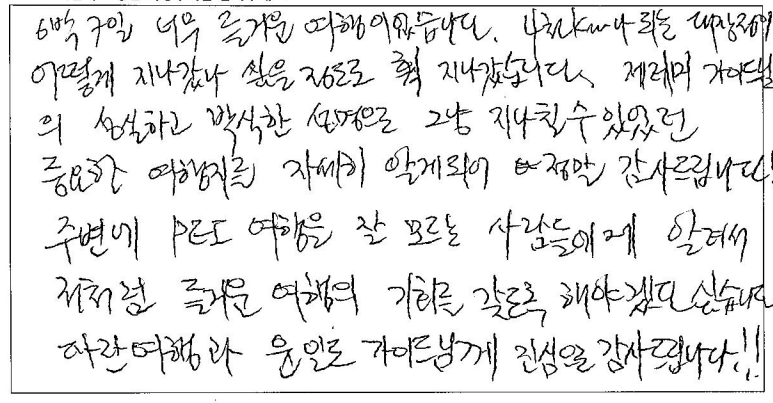 6박 7일 너무 즐거운 여행이었습니다. 4천km나 되는 대장정이
어떻게 지나갔나 싶을 정도로 훽 지나갔습니다. 제레미 가이드님
의 성실하고 박식한 설명으로 그냥 지나칠수 있었던
중요한 여행지를 자세히 알게되어 정말 감사드립니다!
주변에 여행을 잘 모르는 사람들에게 알려서
저처럼 즐거운 여행의 기회를 갖도록 해야겠다 싶습니다
여행과 가이드님께 진심으로 감사드립니다!!